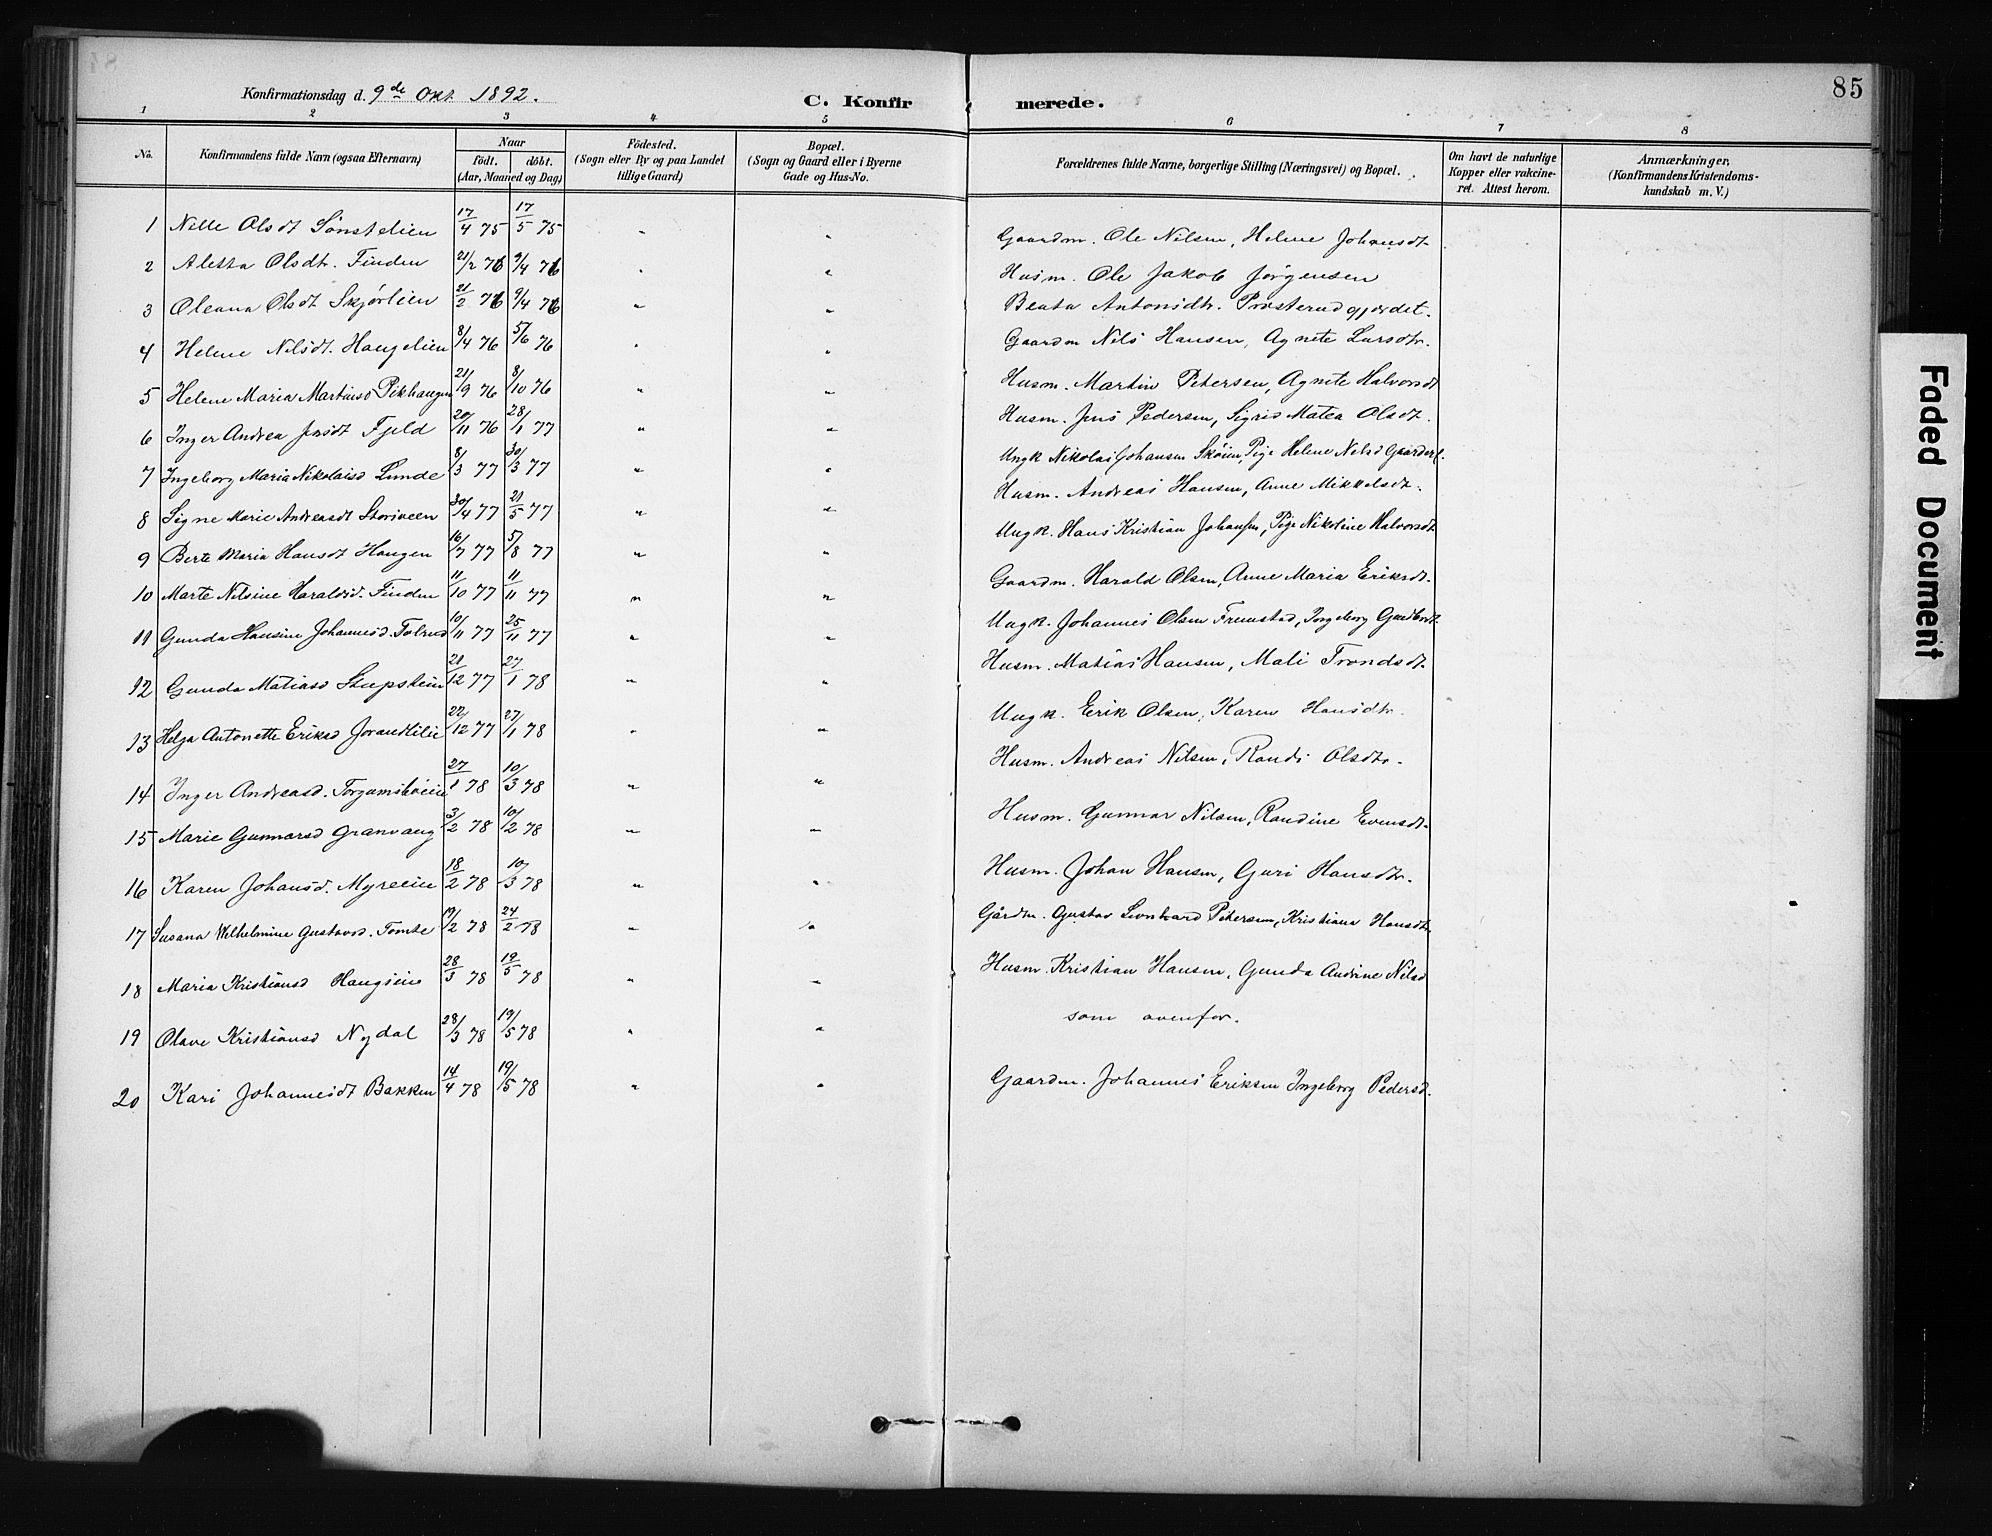 85
Konfirmationsdag d. 9de Okt. 1892.
C. Konfirmerede.
1 2 3 4 5 6 7 8
No.
Konfirmandens fulde Navn (ogsaa Efternavn)
Naar
født. døbt.
(Aar, Maaned og Dag)
Fødested.
(Sogn eller By og paa Landet
tillige Gaard)
Bopæl.
(Sogn og Gaard eller i Byerne
Gade og Hus-No.
Forældrenes fulde Navne, borgerlige Stilling (Næringsvei) og Bopæl.
Om havt de naturlige
Kopper eller vakcine-
ret. Attest herom.
Anmærkninger,
(Konfirmandens Kristendoms-
kundskab m. V.)
1 Nille Olsdt Sønstelien 17/4 75 17/5 75 " " Gaardm. Ole Nilsen, Helene Johansdt.
2 Aletta Olsdtr. Finden 21/2 76 9/4 76 " " Husm. Ole Jakob Jørgensen
3 Oleana Olsdt Skjørlien 21/2 76 9/4 76 " " Beata Antonsdtr. Prosterudgjerdet.
4 Helene Nilsdt. Haugelien 8/4 76 5/6 76 " " Gaardm Nils Hansen, Agnete Larsdtr.
5 Helene Maria Martinsd Pikhaugen 21/9 76 8/10 76 " " Husm. Martin Petersen, Agnete Halvorsdt
6 Inger Andrea Jensdt Fjeld 20/11 76 28/1 77 " " Husm. Jens Pedersen, Sigrid Matea Olsdt.
7 Ingeborg Maria Nikolaisd Lunde 8/3 77 30/3 77 " " Ungk Nikolai Johansen Skøien, Pige Helene Nilsd Gaarderl.
8 Signe Marie Andreasdt Storiveen 30/4 77 21/5 77 " " Husm. Andreas Hansen, Anne Mikkelsdt.
9 Berte Maria Hansdt Haugen 16/7 77 5/8 77 " " Ungk. Hans Kristian Johansen, Pige Nikoline Halvorsdt
10 Marte Nilsine Haraldsd. Finden 11/10 77 11/11 77 " " Gaardm. Harald Olsen, Anne Maria Eriksdt.
11 Gunda Hansine Johannesd. Tolrud 10/11 77 25/11 77 " " Ungk. Johannes Olsen Fremstad, Ingeborg Gudbrdt.
12 Gunda Matiasd Stupslien 21/12 77 27/1 78 " " Husm. Matias Hansen, Mali Trondsdt.
13 Helga Antonette Eriksd Jorandlilie 22/12 77 27/1 78 " " Ungk. Erik Olsen, Karen Hansdtr.
14 Inger Andreasd. 27/1 78 10/3 78 " " Husm. Andreas Nilsen, Randi Olsdtr.
15 Marie Gunnarsd Granvang 3/2 78 10/2 78 " " Husm. Gunnar Nilsen, Randine Evensdt.
16 Karen Johansd. Myreeie 18/2 78 10/3 78 " " Husm. Johan Hansen, Guri Hansdtr.
17 Susana Wilhelmine Gustavsd. Tomte 19/2 78 24/2 78 " " Gårdm. Gustav Leonhard Petersen, Kristiane Hansdtr.
18 Maria Kristiansd Haugseie 28/3 78 19/5 78 " " Husm. Kristian Hansen, Gunda Andrine Nilsd
19 Olave Kristiansd Nydal 28/3 78 19/5 78 " " som ovenfor.
20 Kari Johannesdt Bakken 14/4 78 19/5 78 " " Gaardm. Johannes Eriksen Ingeborg Pedersd.
Faded Document